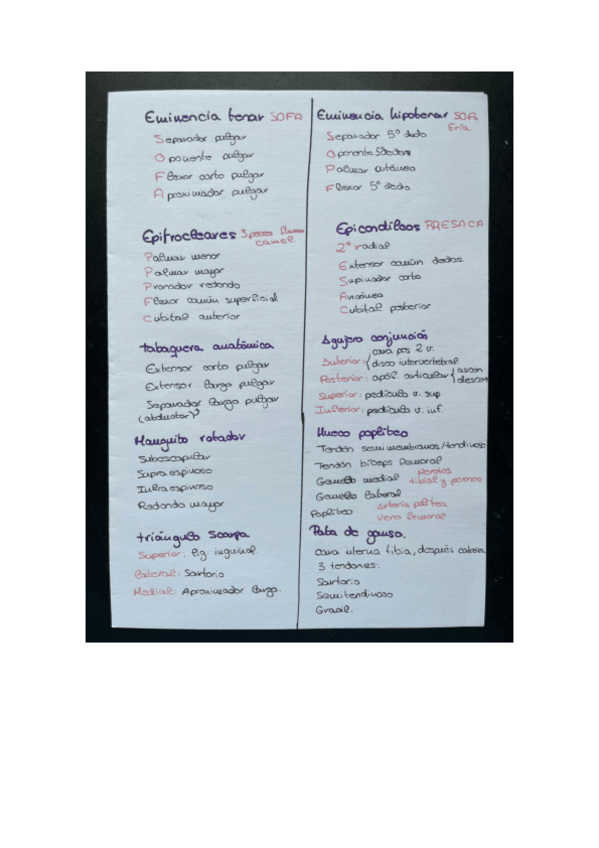 Eminencia tenar SOFA
Separador pulgar
Oponente pulgar
Flexor corto pulgar
Aproximador pulgar
Epitrocleares 3 pacas fluma
camel
Palmar menor
Palmar mayor
Pronador redondo
Flexor común superficial
Cubital anterior
tabaquera anatómica
Extensor corto pulgar
Extensor largo pulgar
Separador largo pulgar
(abductor)
Manguito rotador
Subescapular
Supraespinoso
Infraespinoso
Redondo mayor
triángulo Scarpa
Superior: lig inguinal
Lateral: Sartorio
Medial: Aproximador largo.
Eminencia hipotenar SOFA
Separador 5º dedo
Oponente 5º dedo
Palmar cutáneo
Flexor 5º dedo
Epicondíleos PRESACA
2º radial
Extensor común dedos
Supinador corto
Ancóneo
Cubital posterior
Agujero conjunción
Anterior: cara pos 2 v.
disco intervertebral
Posterior: apóf. articular ascen
descen
Superior: pedículo v. sup
Inferior: pedículo v. inf.
Hueco poplíteo
Tendón semimembranoso/tendinoso
Tendón bíceps femoral
Gemelo medial Nervios
tibial y peroneo
Gemelo lateral
Poplíteo arteria poplítea
Vena femoral
Pata de ganso.
cara interna tibia, después
3 tendones:
Sartorio
Semitendinoso
Gracil.